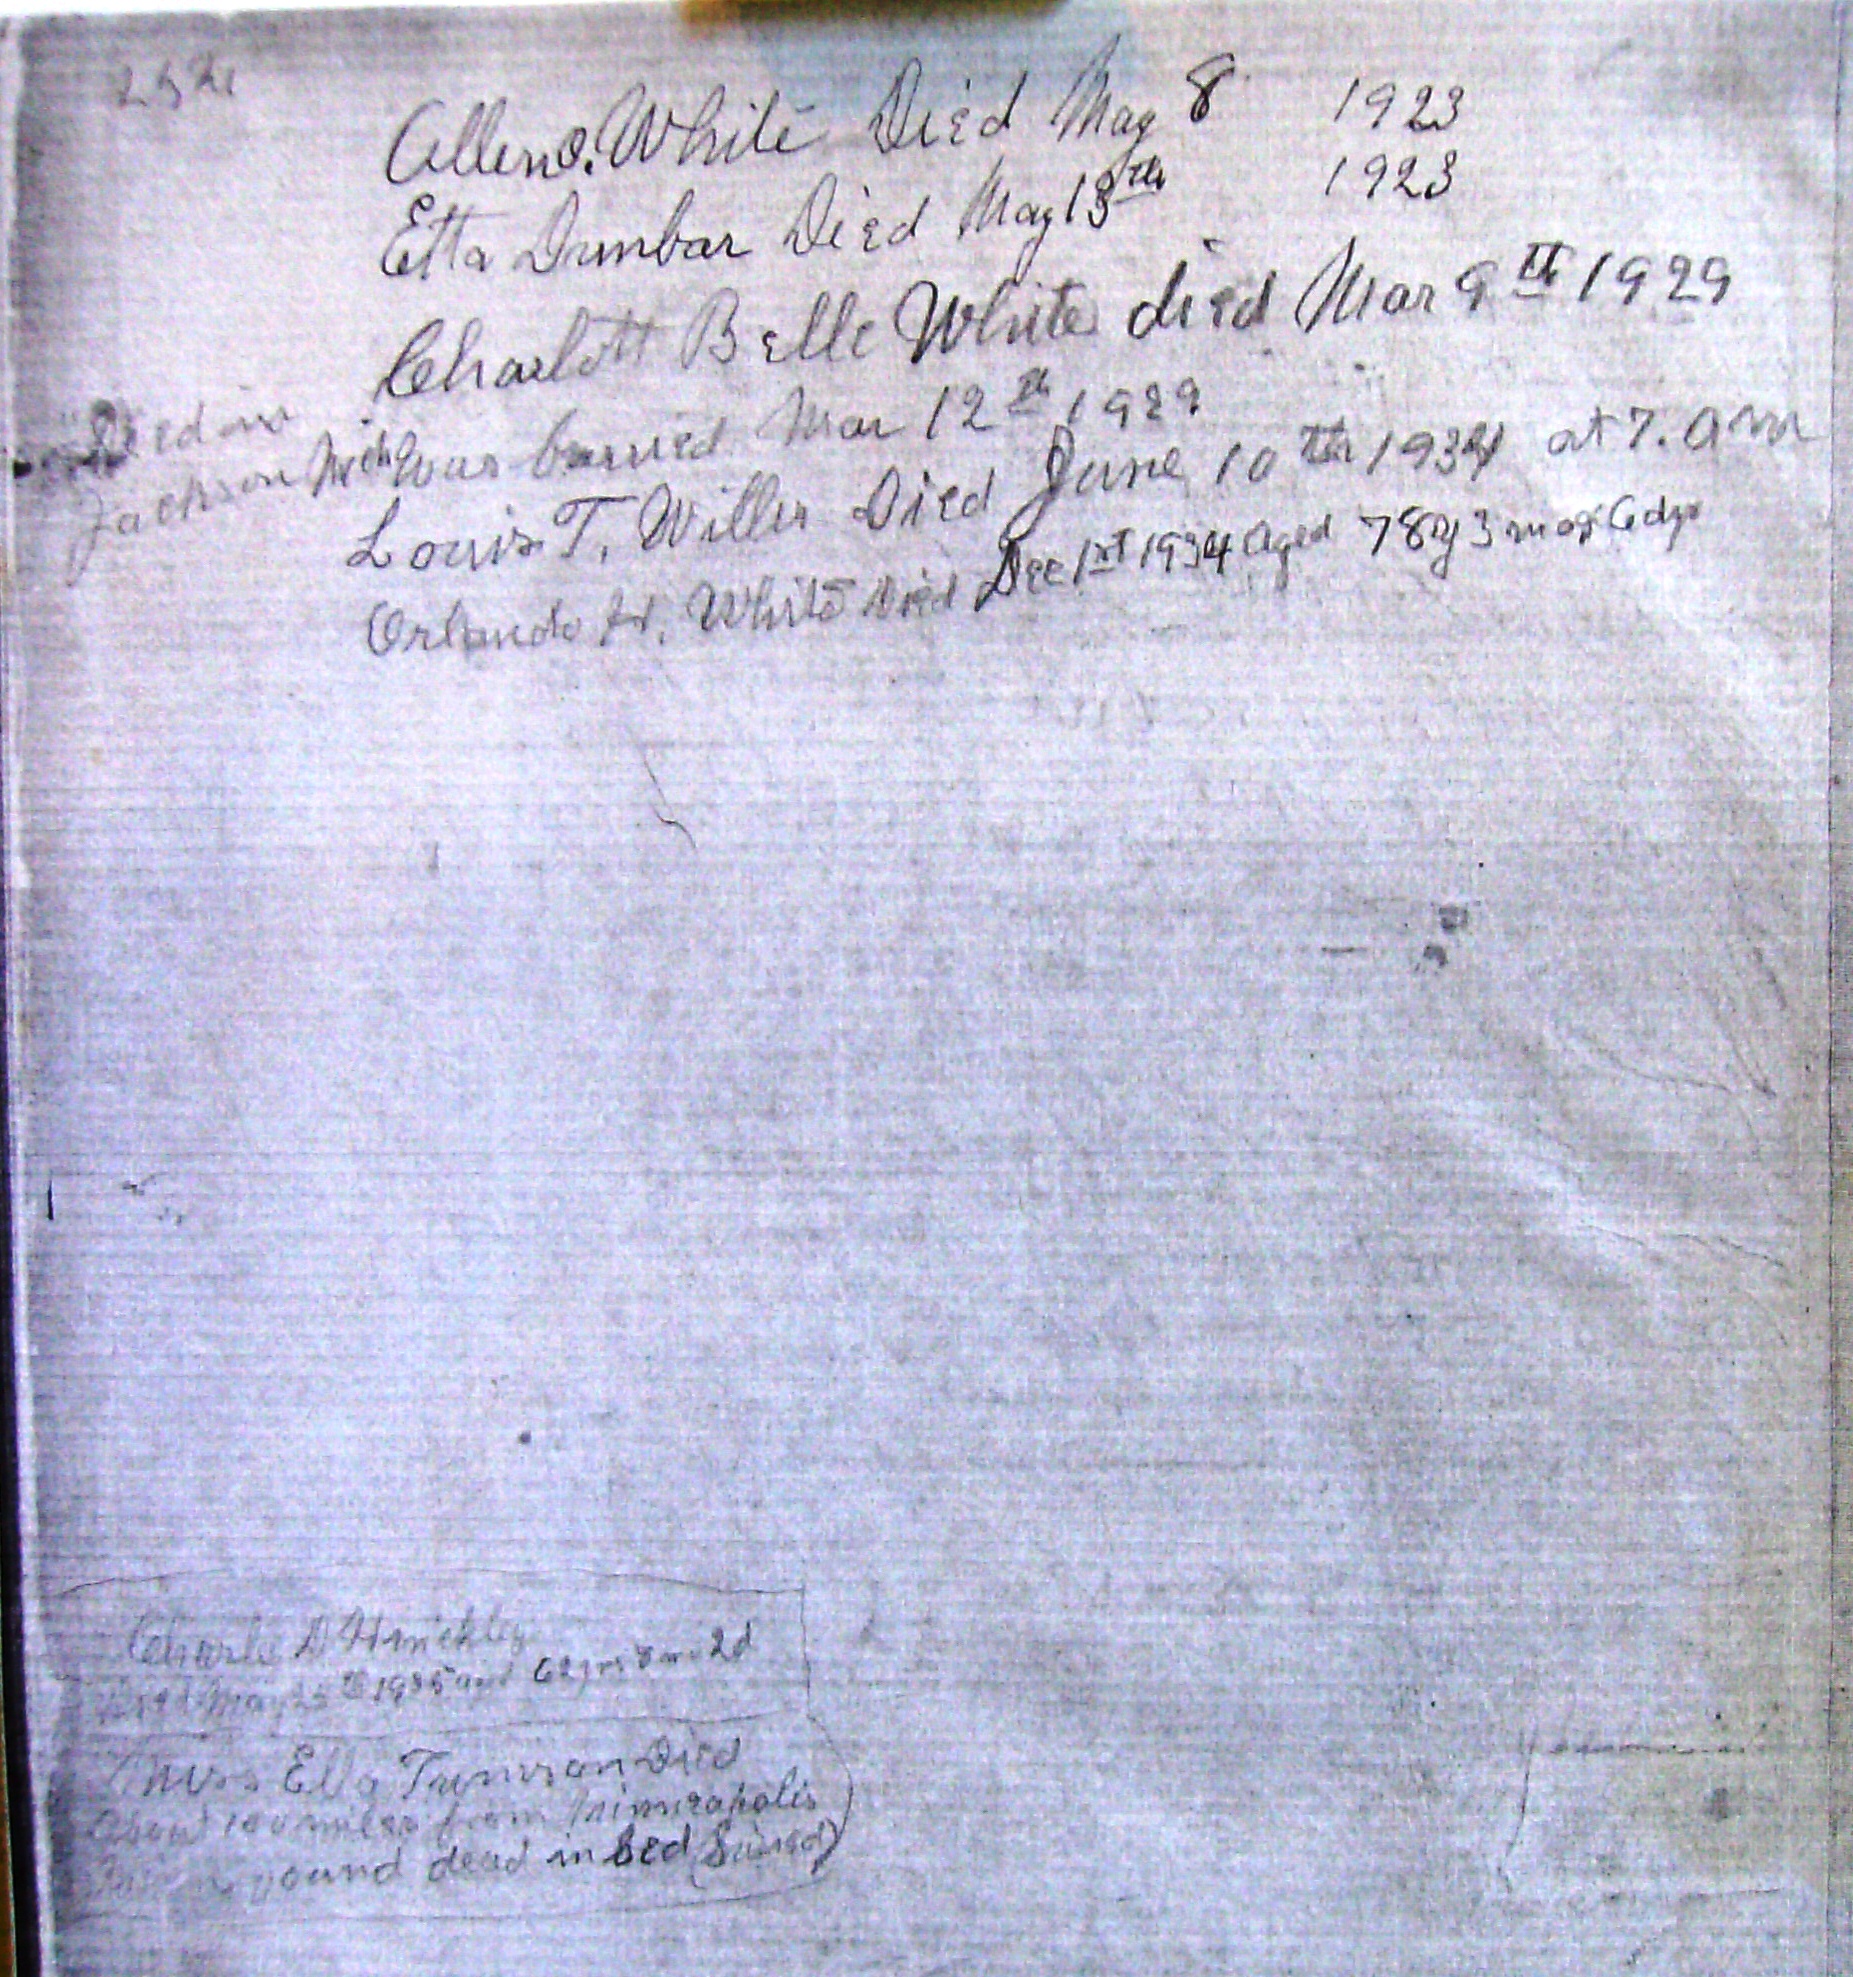 Allen O. White Died May 8 1923
Etta Dunbar Died May 13th 1923
Charlott Belle White died Mar 9th 1929
Died in
Jackson Mich Was burried Mar 12th 1929
Louis T. Willis Died June 10th 1934 at 7. am
Orlando H. White Died Dec 1st 1934 aged 78 y 3 mos 6 dys
Charle D Hinckley
Died May 25th 1935 aged 62 yrs 8 mo 2d
Miss Ella Tunison Died
about 100 miles from Minneapolis
found dead in bed